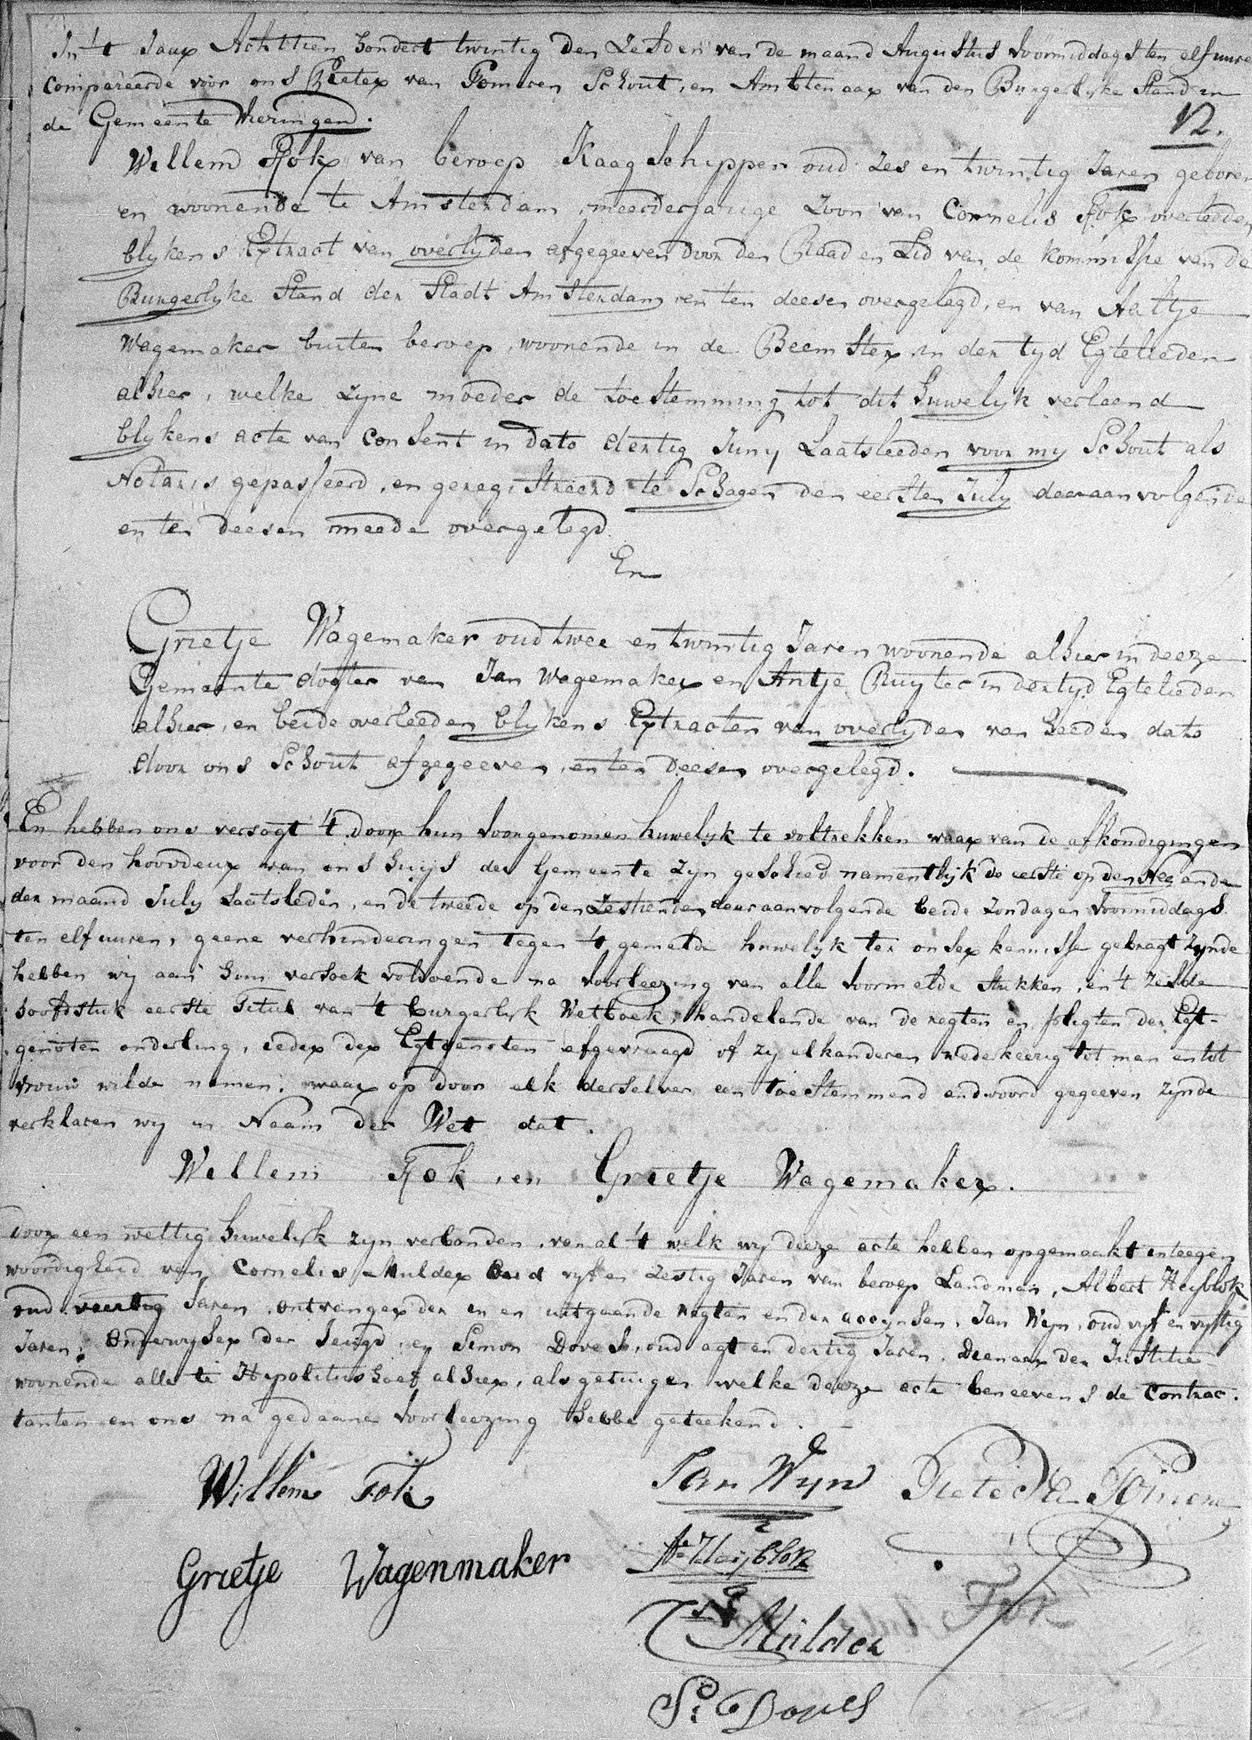 In 't Jaar Achttien hondert twintig den Zesden van de maand Augustus voormiddags ten elf uuren
Compareerde voor ons Pieter van Tomeren Schout, en Ambtenaar van den Burgerlyke Stand in
de Gemeente Wieringen.
12.
Willem Fok van beroep Kaagschipper oud zes en twintig Jaren geboren
en woonende te Amsterdam, meerderjarige Zoon van Cornelis Fok overleeden
blykens Extract van overlyden afgegeeven door den Raad en Lid van de Kommissie van de
Burgerlyke Stand der Stadt Amsterdam en ten deesen overgelegd, en van Aaltje
Wagemaker buiten beroep, woonende in de Beemster, in der tyd Egtelieden
alhier, welke zyne moeder de toestemming tot dit Huwelyk verleend
blykens acte van Consent in dato dertig Juny Laatsleeden voor my Schout als
Notaris gepasseerd, en geregistreerd te Schagen den eersten July daaraanvolgende
en ten deesen meede overgelegd
En
Grietje Wagemaker oud twee en twintig Jaren woonende alhier in deeze
Gemeente dogter van Jan Wagemaker en Antje Ruyter in der tyd Egtelieden
alhier, en beide overleeden blykens Extracten van overlyden van heeden dato
door ons Schout afgegeeven, en ten deesen overgelegd.
En hebben ons versogt 't door hun voorgenomen huwelyk te voltrekken waar van de afkondigingen
voor den hoovdeur van ons huijs der Gemeente zyn geschied namentlyk de eerste op den Negende
der maand July Laatsleden, en de tweede op den Zestienden daaraanvolgende beide Zondagen voormiddags
ten elf uuren, geene verhinderingen tegen 't gemelde huwelyk ter onser kennisse gebragt zynde
hebben wy aan hun versoek voldoende na voorleezing van alle voormelde stukken, en 't Zesde
hoofdstuk eerste Titul van 't burgerlyk Wetboek, handelende van de regten en pligten der Egt-
genoten onderling, ieder der Egtgenoten afgevraagd of zy elkanderen wederkeerig tot man en tot
vrouw wilde nemen, waar op door elk derselver een toestemmend andwoord gegeeven zynde
verklaren wy in Naam der Wet dat.
Willem Fok, en Grietje Wagemaker.
door een wettig huwelyk zyn verbonden, van al 't welk wy deeze acte hebben opgemaakt in teegen
woordigheid van Cornelis Mulder oud vyf en Zestig Jaren van beroep Landman, Albert Heyblok
oud veertig Jaren, ontvanger der in en uitgaande regten en der accynsen, Jan Wyn, oud vyf en vyftig
Jaren, Onderwyser der Jeugd, en Simon Doves, oud agt en dertig Jaren, Dienaar der Justitie
woonende alle te Hypolitushoef alhier, als getuigen welke deeze acte beneevens de Contrac-
tanten en ons na gedaane voorleezing hebbe geteekend.
Willem Fok
Jan Wyn
Pieter v Tomeren
Grietje Wagenmaker
A. Heyblok
Cs Mulder
Si Doves